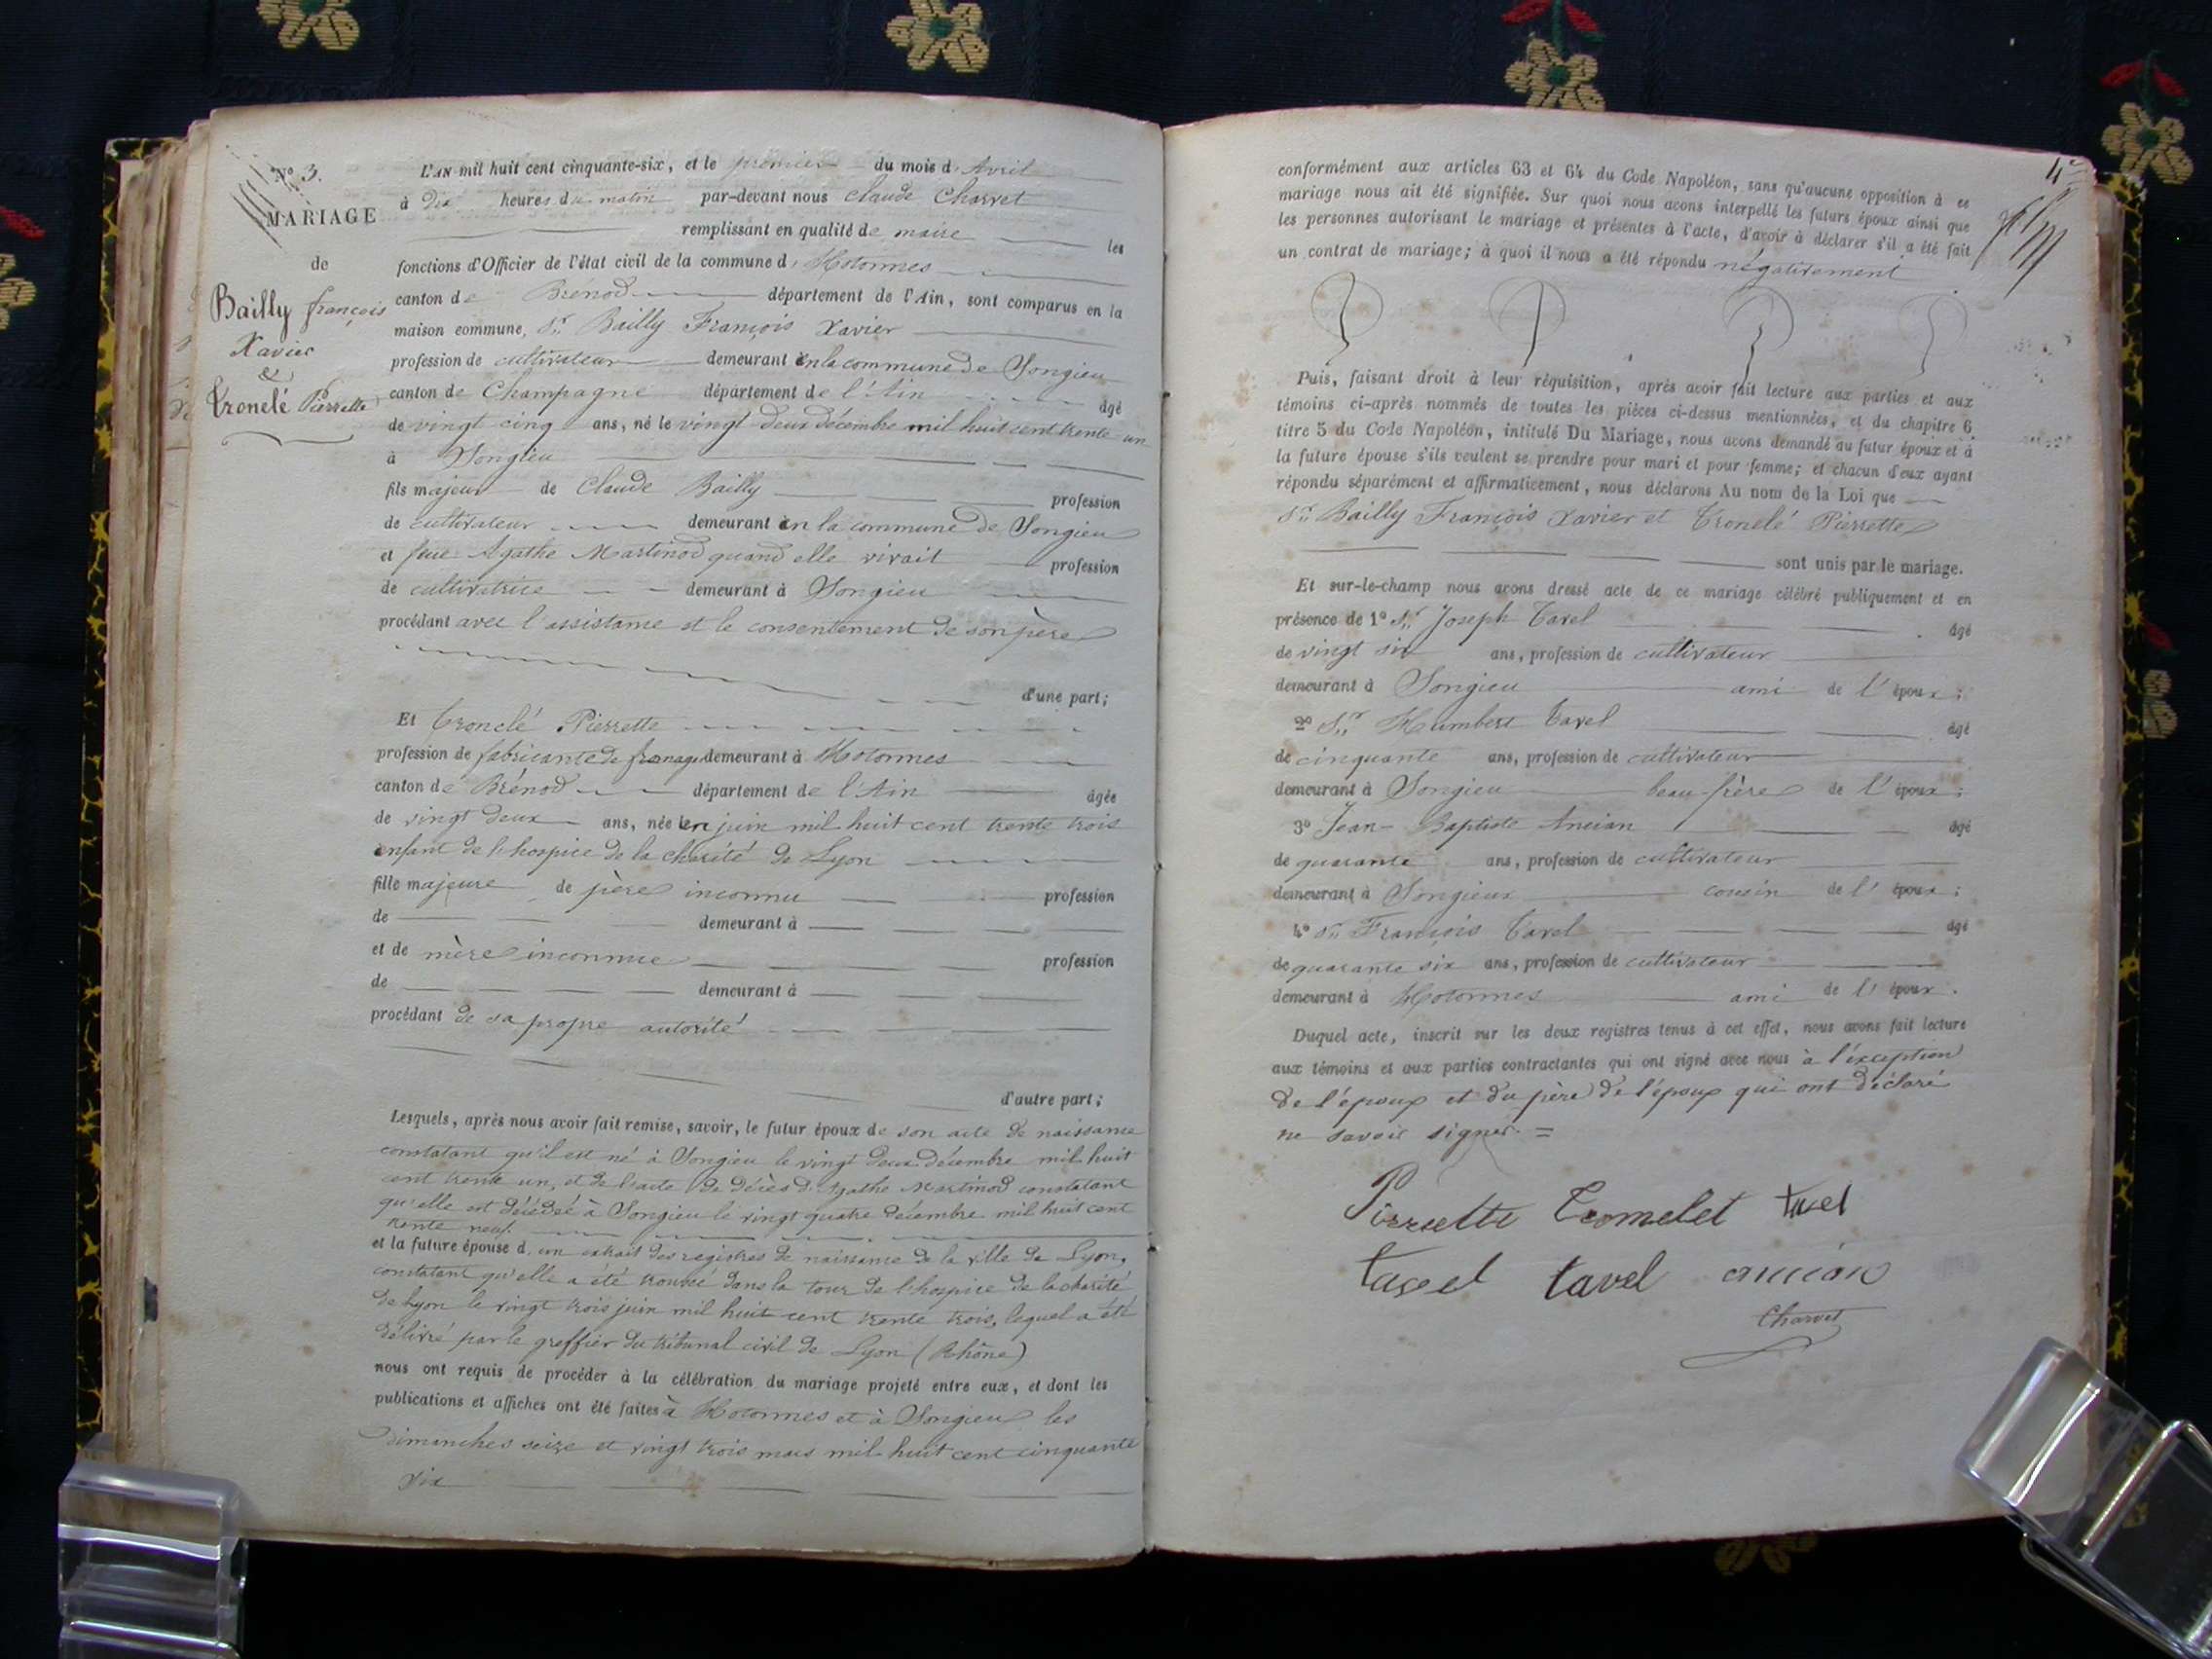 N° 3.
MARIAGE
de
Bailly françois
Xavier
&
Tronclé Pierrette
L'AN mil huit cent cinquante-six, et le premier du mois d'Avril
à dix heures du matin par-devant nous Claude Charvet
remplissant en qualité de maire les
fonctions d'Officier de l'état civil de la commune d' Hotonnes
canton de Brenod département de l'Ain, sont comparus en la
maison commune, Sr Bailly François Xavier
profession de cultivateur demeurant en la commune de Songieu
canton de Champagne département de l'Ain âgé
de vingt cinq ans, né le vingt deux décembre mil huit cent trente un
à Songieu
fils majeur de Claude Bailly profession
de cultivateur demeurant en la commune de Songieu
et feue Agathe Martinod quand elle vivait profession
de cultivatrice demeurant à Songieu
procédant avec l'assistance et le consentement de son père
d'une part;
Et Tronclé Pierrette
profession de fabricante de fromage demeurant à Hotonnes
canton de Brénod département de l'Ain âgée
de vingt deux ans, née en juin mil huit cent trente trois
enfant de l'hospice de la charité de Lyon
fille majeure de père inconnu profession
de demeurant à
et de mère inconnue profession
de demeurant à
procédant de sa propre autorité
d'autre part;
Lesquels, après nous avoir fait remise, savoir, le futur époux de son acte de naissance
constatant qu'il est né à Songieu le vingt deux décembre mil huit
cent trente un, et de l'acte de décès d'Agathe Martinod constatant
qu'elle est décédée à Songieu le vingt quatre décembre mil huit cent
trente neuf.
et la future épouse d'un extrait des registres de naissance de la ville de Lyon,
constatant qu'elle a été trouvée dans la tour de l'hospice de la charité
de Lyon le vingt trois juin mil huit cent trente trois, lequel a été
délivré par le greffier du tribunal civil de Lyon (Rhône)
nous ont requis de procéder à la célébration du mariage projeté entre eux, et dont les
publications et affiches ont été faites à Hotonnes et à Songieu les
dimanches seize et vingt trois mars mil huit cent cinquante
six
conformément aux articles 63 et 64 du Code Napoléon, sans qu'aucune opposition à ce
mariage nous ait été signifiée. Sur quoi nous avons interpellé les futurs époux ainsi que
les personnes autorisant le mariage et présentes à l'acte, d'avoir à déclarer s'il a été fait
un contrat de mariage; à quoi il nous a été répondu négativement
Puis, faisant droit à leur réquisition, après avoir fait lecture aux parties et aux
témoins ci-après nommés de toutes les pièces ci-dessus mentionnées, et du chapitre 6
titre 5 du Code Napoléon, intitulé Du Mariage, nous avons demandé au futur époux et à
la future épouse s'ils veulent se prendre pour mari et pour femme; et chacun d'eux ayant
répondu séparément et affirmativement, nous déclarons Au nom de la Loi que
Sr Bailly François Xavier et Tronclé Pierrette
sont unis par le mariage.
Et sur-le-champ nous avons dressé acte de ce mariage célébré publiquement et en
présence de 1° Sr Joseph Tavel âgé
de vingt six ans, profession de cultivateur
demeurant à Songieu ami de l'époux;
2° Sr Humbert Tavel âgé
de cinquante ans, profession de cultivateur
demeurant à Songieu beau-frère de l'époux;
3° Jean-Baptiste Ancian âgé
de quarante ans, profession de cultivateur
demeurant à Songieux cousin de l'époux;
4° Sr François Tavel âgé
de quarante six ans, profession de cultivateur
demeurant à Hotonnes ami de l'époux.
Duquel acte, inscrit sur les deux registres tenus à cet effet, nous avons fait lecture
aux témoins et aux parties contractantes qui ont signé avec nous à l'exception
de l'époux et du père de l'époux qui ont déclaré
ne savoir signer. =
Pierrette Tromelet tavel
tavel tavel ancian
Charvet